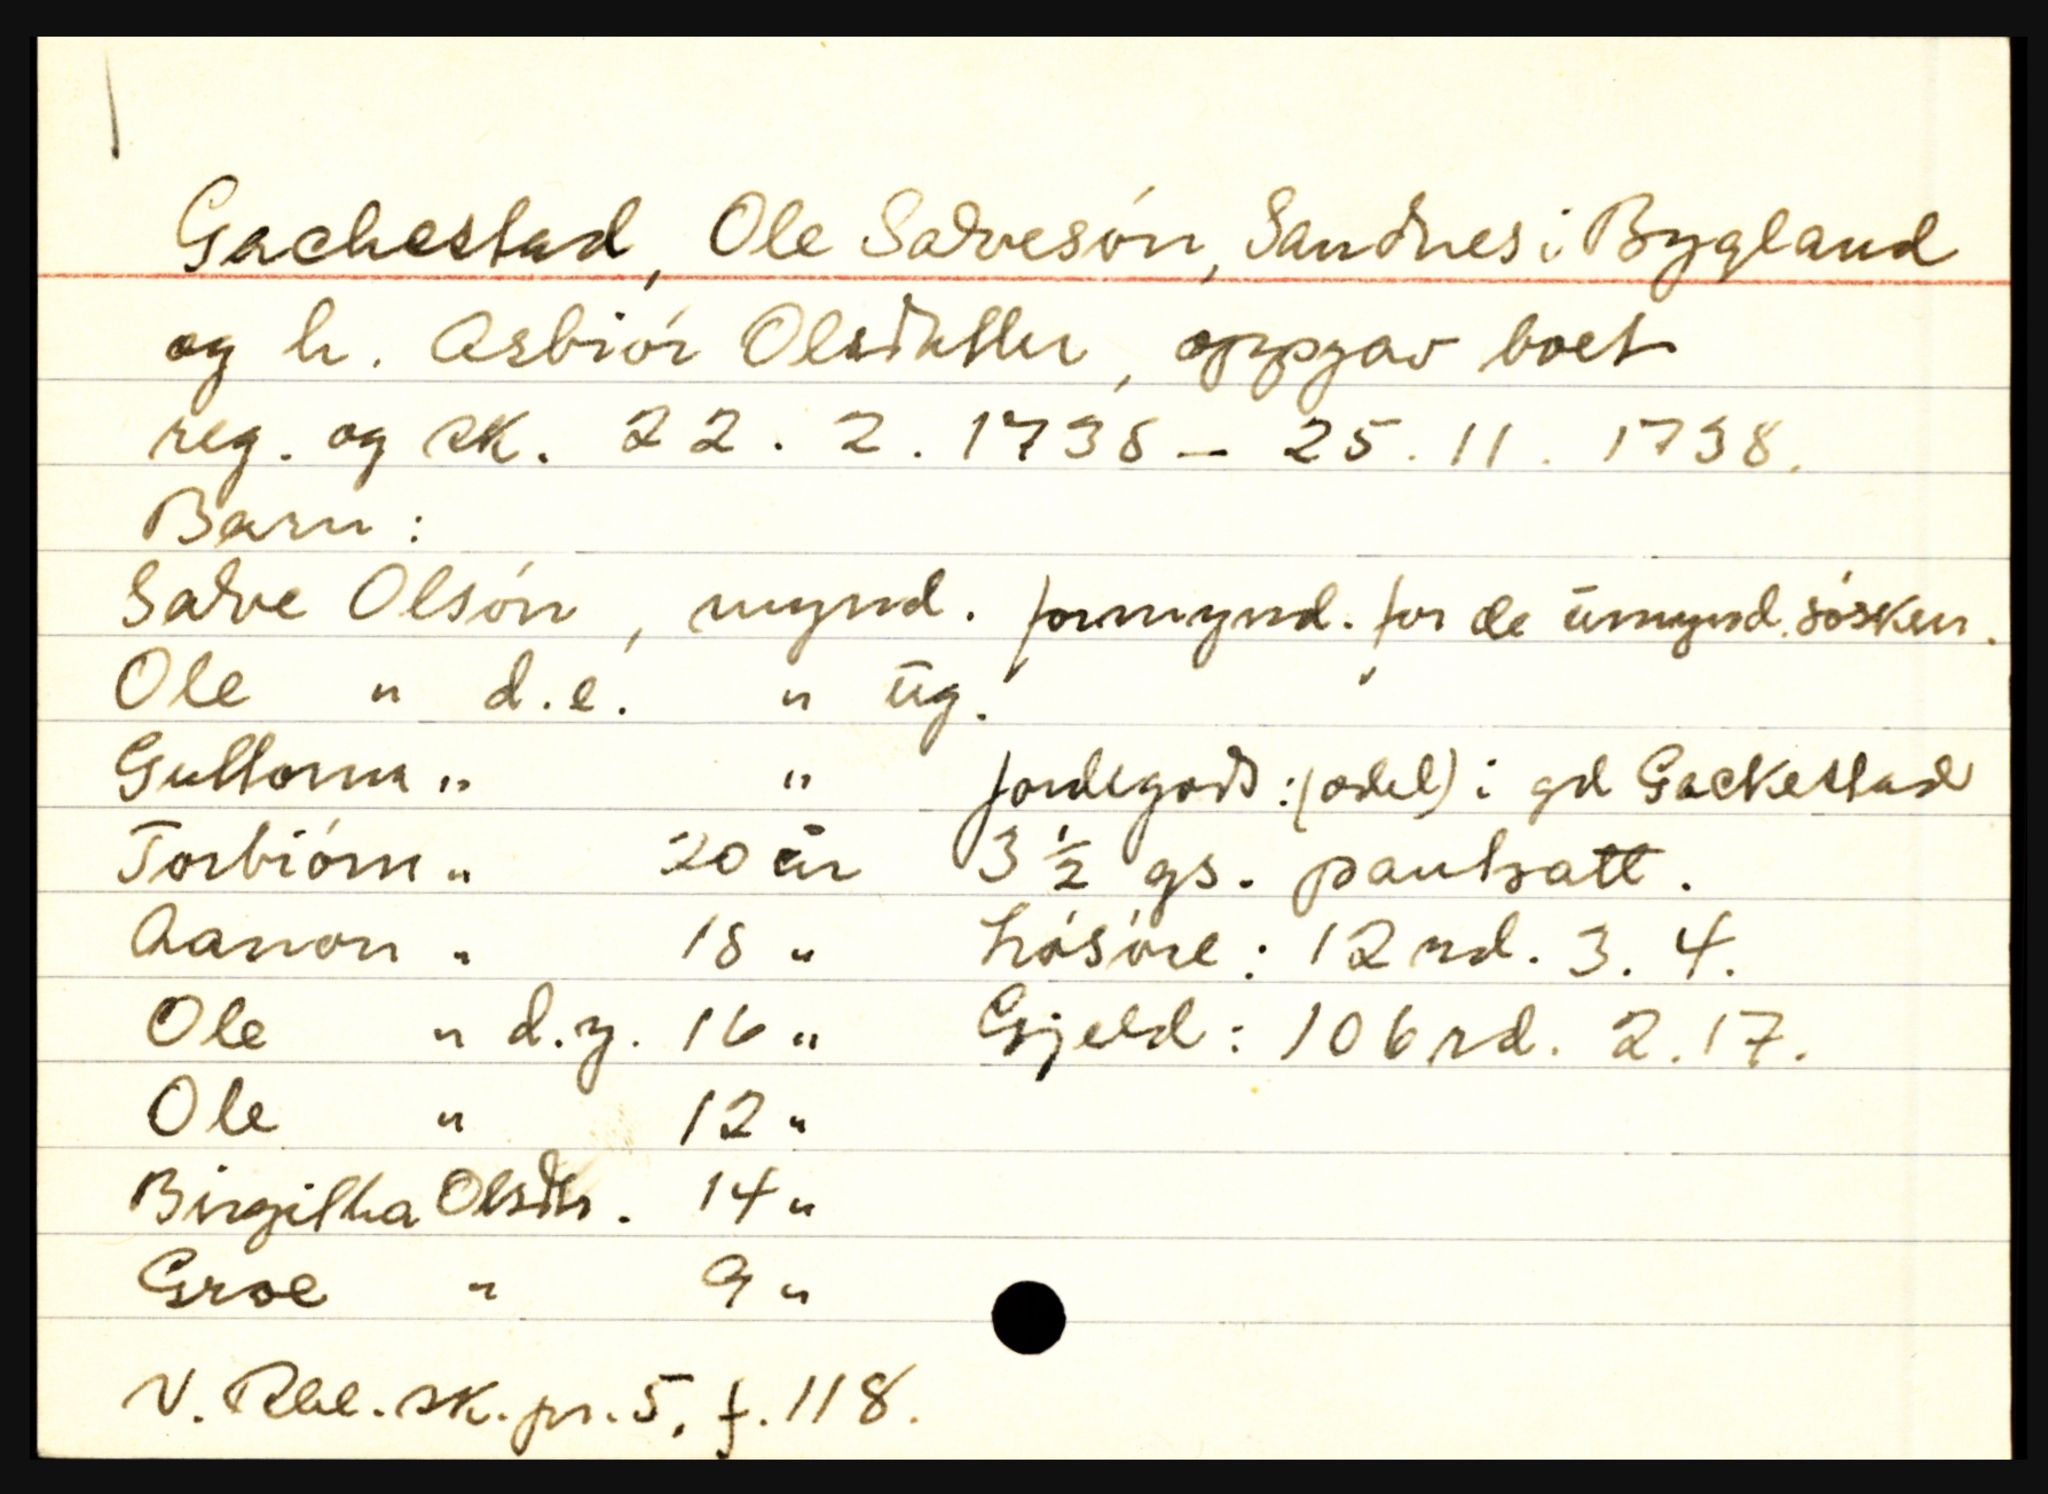 Gachestad, Ole Salvesón, Sandnes i Bygland
og h. Asbiór Olsdatter, oppgav boet
reg. og sk. 22. 2. 1738 – 25. 11. 1738.
Barn:
Salve Olsón, mynd. formynd. for de ūmynd. sósken.
Ole " d.e. " ūg.
Guttorm " " Jordegods: (odel) i gd Gackestad
Torbiórn " 20 år 3 1/2 gs. pantsatt.
Aanon " 18 " Lósóre: 12 rd. 3. 4.
Ole " d.y. 16 " Gjeld: 106 rd. 2. 17.
Ole " 12 "
Birgitha Olsdtr. 14 "
Groe " 9 "
N. Rbl. sk. pr. 5, f. 118.